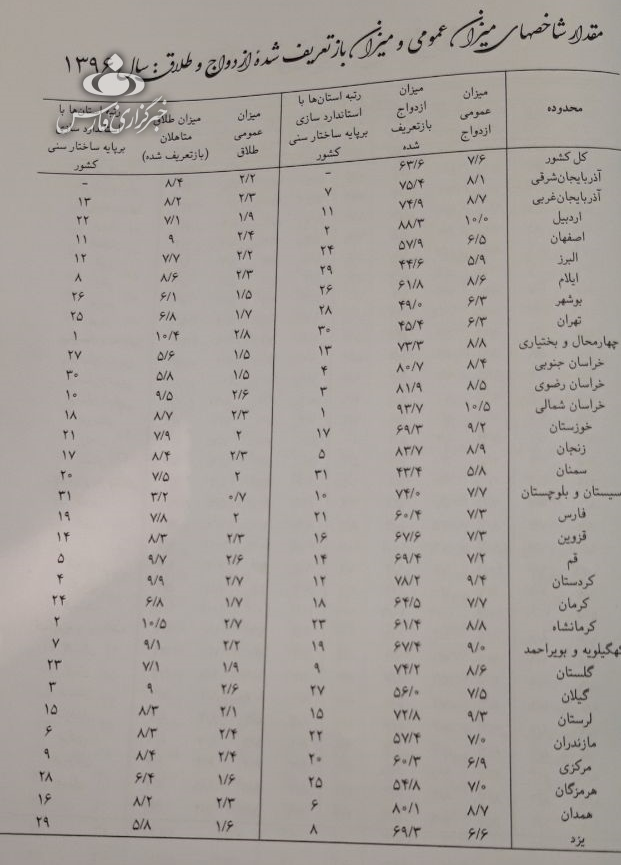 مقدار شاخصهای میزان عمومی و میزان بازتعریف شده ازدواج و طلاق: سال ۱۳۹۶
خبرگزاری فارس
محدوده
میزان
عمومی
ازدواج
میزان
ازدواج
بازتعریف
شده
رتبه استان‌ها با
استاندارد سازی
برپایه ساختار سنی
کشور
میزان
عمومی
طلاق
میزان طلاق
متاهلان
(بازتعریف شده)
رتبه استان‌ها با
برپایه ساختار سنی
کشور
کل کشور ۷/۶ ۶۳/۶ – ۲/۲ ۸/۴ –
آذربایجان‌شرقی ۸/۱ ۷۵/۴ ۷ ۲/۳ ۸/۲ ۱۳
آذربایجان‌غربی ۸/۷ ۷۴/۹ ۱۱ ۱/۹ ۷/۱ ۲۲
اردبیل ۱۰/۰ ۸۸/۳ ۲ ۲/۴ ۹ ۱۱
اصفهان ۶/۵ ۵۷/۹ ۲۴ ۲/۲ ۷/۷ ۱۲
البرز ۵/۹ ۴۴/۶ ۲۹ ۲/۳ ۸/۶ ۸
ایلام ۸/۶ ۶۱/۸ ۲۶ ۱/۵ ۶/۱ ۲۶
بوشهر ۶/۳ ۴۹/۰ ۲۸ ۱/۷ ۶/۸ ۲۵
تهران ۶/۳ ۴۵/۴ ۳۰ ۲/۸ ۱۰/۴ ۱
چهارمحال و بختیاری ۸/۸ ۷۳/۳ ۱۳ ۱/۵ ۵/۶ ۲۷
خراسان جنوبی ۸/۴ ۸۰/۷ ۴ ۱/۵ ۵/۸ ۳۰
خراسان رضوی ۸/۵ ۸۱/۹ ۳ ۲/۶ ۹/۵ ۱۰
خراسان شمالی ۱۰/۵ ۹۳/۷ ۱ ۲/۳ ۸/۷ ۱۸
خوزستان ۹/۲ ۶۹/۳ ۱۷ ۲ ۷/۹ ۲۱
زنجان ۸/۹ ۸۳/۷ ۵ ۲/۳ ۸/۴ ۱۷
سمنان ۵/۸ ۴۳/۴ ۳۱ ۲ ۷/۵ ۲۰
سیستان و بلوچستان ۷/۷ ۷۴/۰ ۱۰ ۰/۷ ۳/۲ ۳۱
فارس ۷/۳ ۶۰/۴ ۲۱ ۲ ۷/۸ ۱۹
قزوین ۷/۳ ۶۷/۶ ۱۶ ۲/۳ ۸/۳ ۱۴
قم ۷/۲ ۶۹/۴ ۱۴ ۲/۶ ۹/۷ ۵
کردستان ۹/۴ ۷۸/۲ ۱۲ ۲/۷ ۹/۹ ۴
کرمان ۷/۷ ۶۴/۵ ۱۸ ۱/۷ ۶/۸ ۲۴
کرمانشاه ۸/۸ ۶۱/۴ ۲۳ ۲/۷ ۱۰/۵ ۲
کهگیلویه و بویراحمد ۹/۰ ۶۷/۴ ۱۹ ۲/۲ ۹/۱ ۷
گلستان ۸/۶ ۷۴/۲ ۹ ۱/۹ ۷/۱ ۲۳
گیلان ۷/۵ ۵۶/۰ ۲۷ ۲/۶ ۹ ۳
لرستان ۹/۳ ۷۲/۸ ۱۵ ۲/۱ ۸/۳ ۱۵
مازندران ۷/۰ ۵۷/۴ ۲۲ ۲/۴ ۸/۳ ۶
مرکزی ۶/۹ ۶۰/۳ ۲۰ ۲/۴ ۸/۴ ۹
هرمزگان ۷/۰ ۵۴/۸ ۲۵ ۱/۶ ۶/۴ ۲۸
همدان ۸/۷ ۸۰/۱ ۶ ۲/۳ ۸/۲ ۱۶
یزد ۶/۶ ۶۹/۳ ۸ ۱/۶ ۵/۸ ۲۹